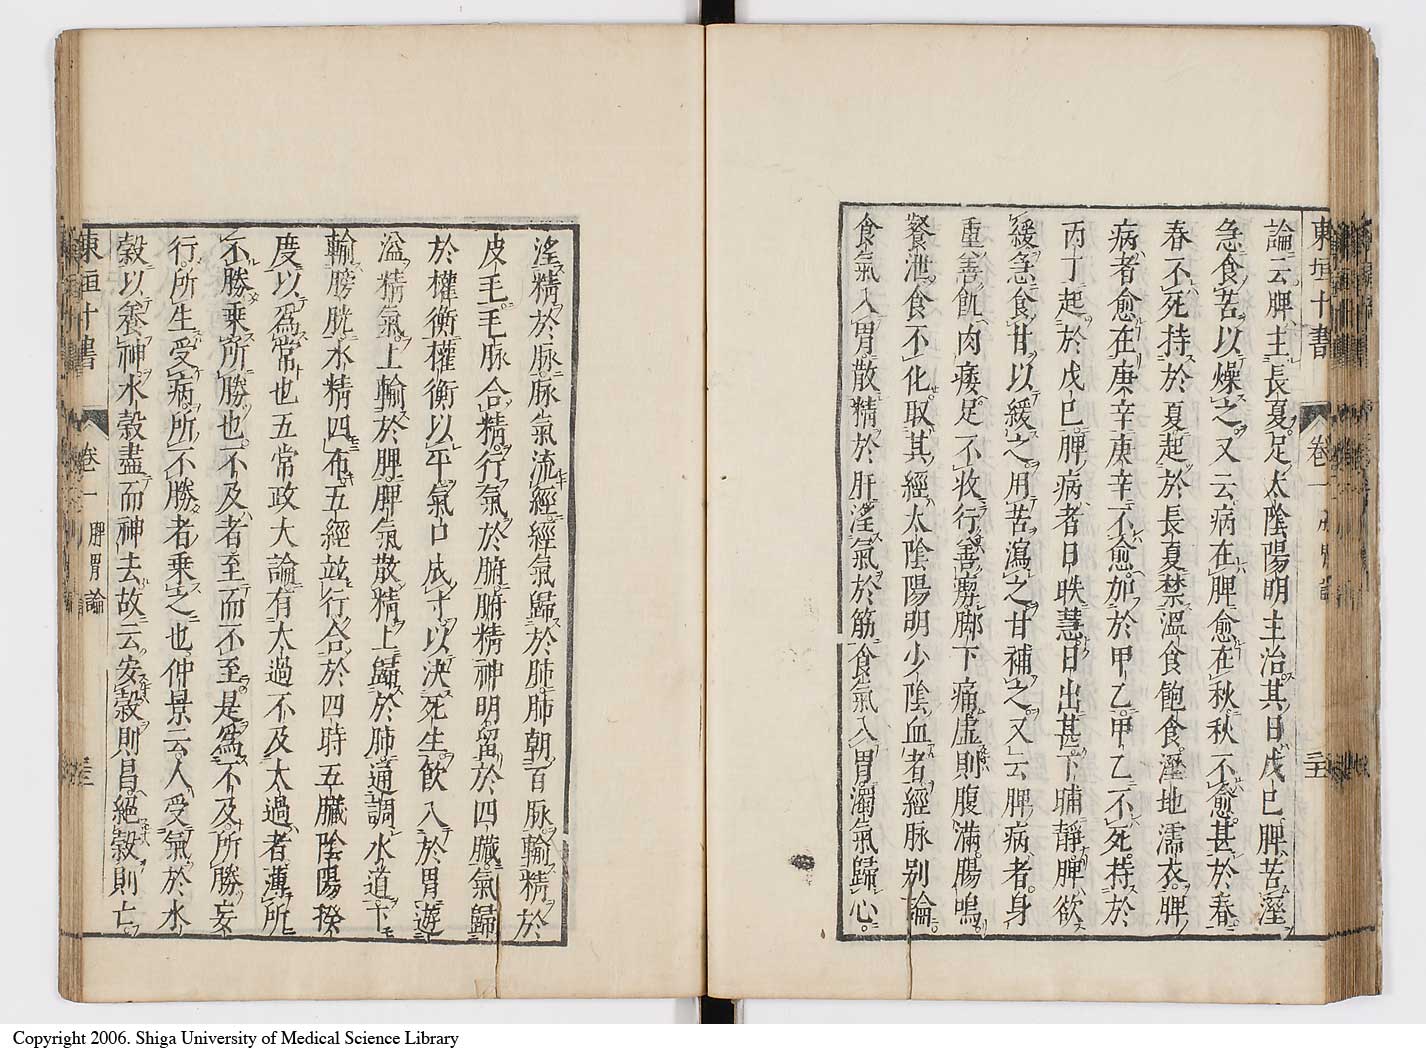 東垣十書 卷一
論云脾主長夏足太陰陽明主治其日戊已脾苦溼
急食苦以燥之又云病在脾愈在秋秋不愈甚於春
春不死持於夏起於長夏禁溫食飽食溼地濡衣脾
病者愈在庚辛庚辛不愈加於甲乙甲乙不死持於
丙丁起於戊已脾病者日昳慧日出甚下晡靜脾欲
緩急食甘以緩之用苦瀉之甘補之又云脾病者身
重善飢肉痿足不收行善瘈脚下痛虛則腹滿腸鳴
飱泄食不化取其經太陰陽明少陰血者經脉別論
食氣入胃散精於肝淫氣於筋食氣入胃濁氣歸心
淫精於脉脉氣流經經氣歸於肺肺朝百脉輸精於
皮毛毛脉合精行氣於腑腑精神明留於四臟氣歸
於權衡權衡以平氣口成寸以決死生飲入於胃遊
溢精氣上輸於脾脾氣散精上歸於肺通調水道下
輸膀胱水精四布五經並行合於四時五臟陰陽揆
度以爲常也五常政大論有太過不及太過者薄所
不勝乘所勝也不及者至而不至是爲不及所勝妄
行所生受病所不勝者乘之也仲景云人受氣於水
穀以養神水穀盡而神去故云安穀則昌絕穀則亡
東垣十書 卷一 脾胃論
Copyright 2006. Shiga University of Medical Science Library